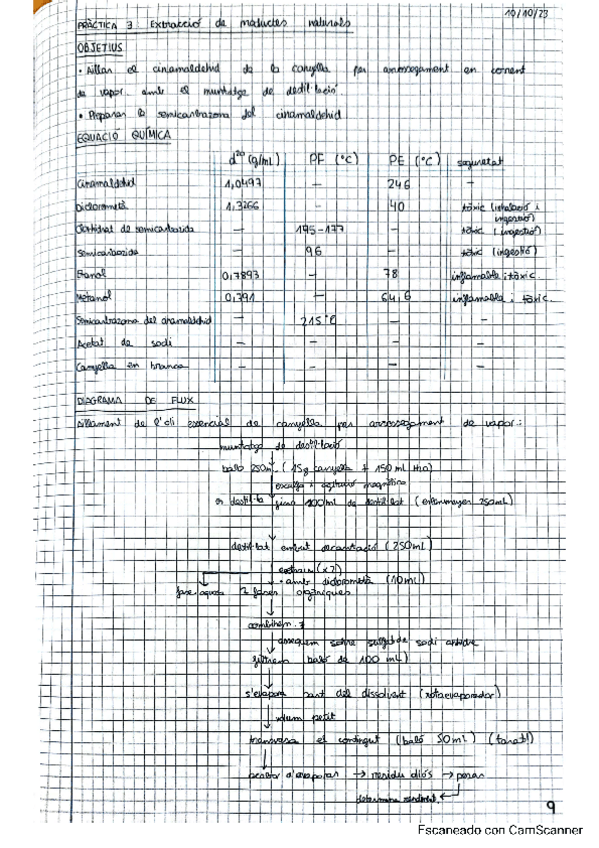 10/10/23
PRÀCTICA 3: Extracció de matèries naturals
OBJETIUS
• Aïllar el cinamaldehid de la canyella per arrossegament en corrent
de vapor amb el muntatge de destil·lació
• Preparar la semicarbazona del cinamaldehid
EQUACIÓ QUÍMICA
d²⁰ (g/mL) PF (°C) PE (°C) seguretat
Cinamaldehid 1,0497 — 246 —
Diclorometà 1,3266 — 40 tòxic (inhalació i ingestió)
Clorhidrat de semicarbazida — 175-177 — tòxic (ingestió)
Semicarbazida — 96 — tòxic (ingestió)
Etanol 0,7893 — 78 inflamable i tòxic
Metanol 0,791 — 64,6 inflamable i tòxic
Semicarbazona del cinamaldehid — 215°C — —
Acetat de sodi — — — —
Canyella en branca — — — —
DIAGRAMA DE FLUX
Aïllament de l'oli essencial de canyella per arrossegament de vapor:
muntatge de destil·lació
baló 250mL (15g canyella + 150 mL H2O)
escalfa i agitació magnètica
es destil·la fins 100mL de destil·lat (erlenmeyer 250mL)
destil·lat embut decantació (250mL)
extraiem (x2)
• amb diclorometà (10mL)
fase aquosa 2 fases orgàniques
combinem
assequem sobre sulfat de sodi anhidre
filtrem baló de 100 mL)
s'evapora part del dissolvent (rotaevaporador)
volum petit
transvasa el contingut (baló 50mL) (tarat!)
acabar d'evaporar → residu oliós → pesar
determinar rendiment
9
Escaneado con CamScanner